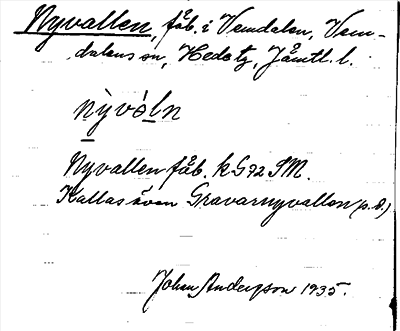 Nyvallen, fäb. i Vemdalen, Vem-
dalens sn, Hede tg, Jämtl. l.
nỳvàln
Nyvallen fäb. k G 92 SM.
Kallas även Gravarnyvallen (s. d.)
Johan Anderson 1935.